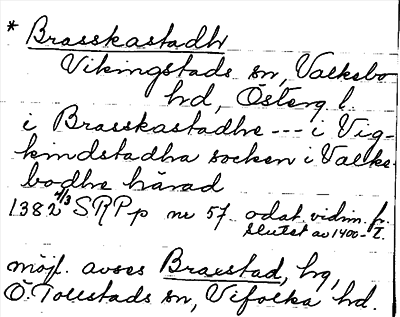 * Brasskastadh
Vikingstads sn, Valkebo
hd, Österg. l.
i Brasskastadhe --- i Vig-
kindstadha socken i Valke-
bodhe härad
1382 4/3 SRPp nr 57 odat. vidim. fr.
slutet av 1400-t.
möjl. avses Braestad, hg,
Ö. Tollstads sn, Vifolka hd.